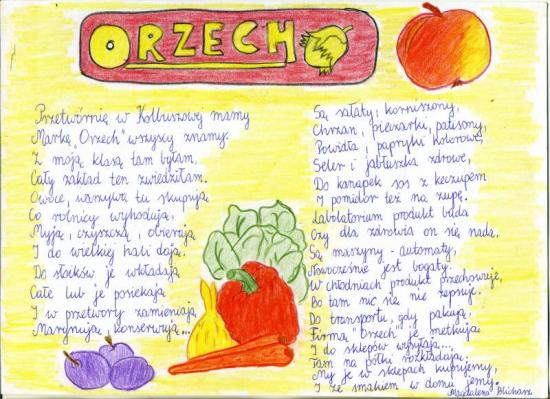 ORZECH
Przetwórnię w Kolbuszowej mamy
Markę "Orzech" wszyscy znamy.
Z moją klasą tam byłam,
Cały zakład ten zwiedziłam.
Owoce, warzywa tu skupują
Co rolnicy wyhodują,
Myją, czyszczą, obierają
I do wielkiej hali dają.
Do słoików je wkładają
Całe lub je posiekają
I w przetwory zamieniają
Marynują, konserwują...
Są sałaty, korniszony,
Chrzan, pieczarki, patisony,
Powidła, papryki kolorowe,
Seler i jabłuszka zdrowe,
Do kanapek sos z keczupem
I pomidor też na zupę.
Labolatorium produkt bada
Czy dla zdrowia on się nada.
Są maszyny - automaty,
Nowocześnie jest bogaty.
W chłodniach produkt przechowuje,
Bo tam nic się nie zepsuje.
Do transportu, gdy pakują,
Firmą "Orzech" je metkują
I do sklepów wysyłają...
Tam na półki rozkładają.
My je w sklepach kupujemy,
I ze smakiem w domu jemy.
Magdalena Blicharz